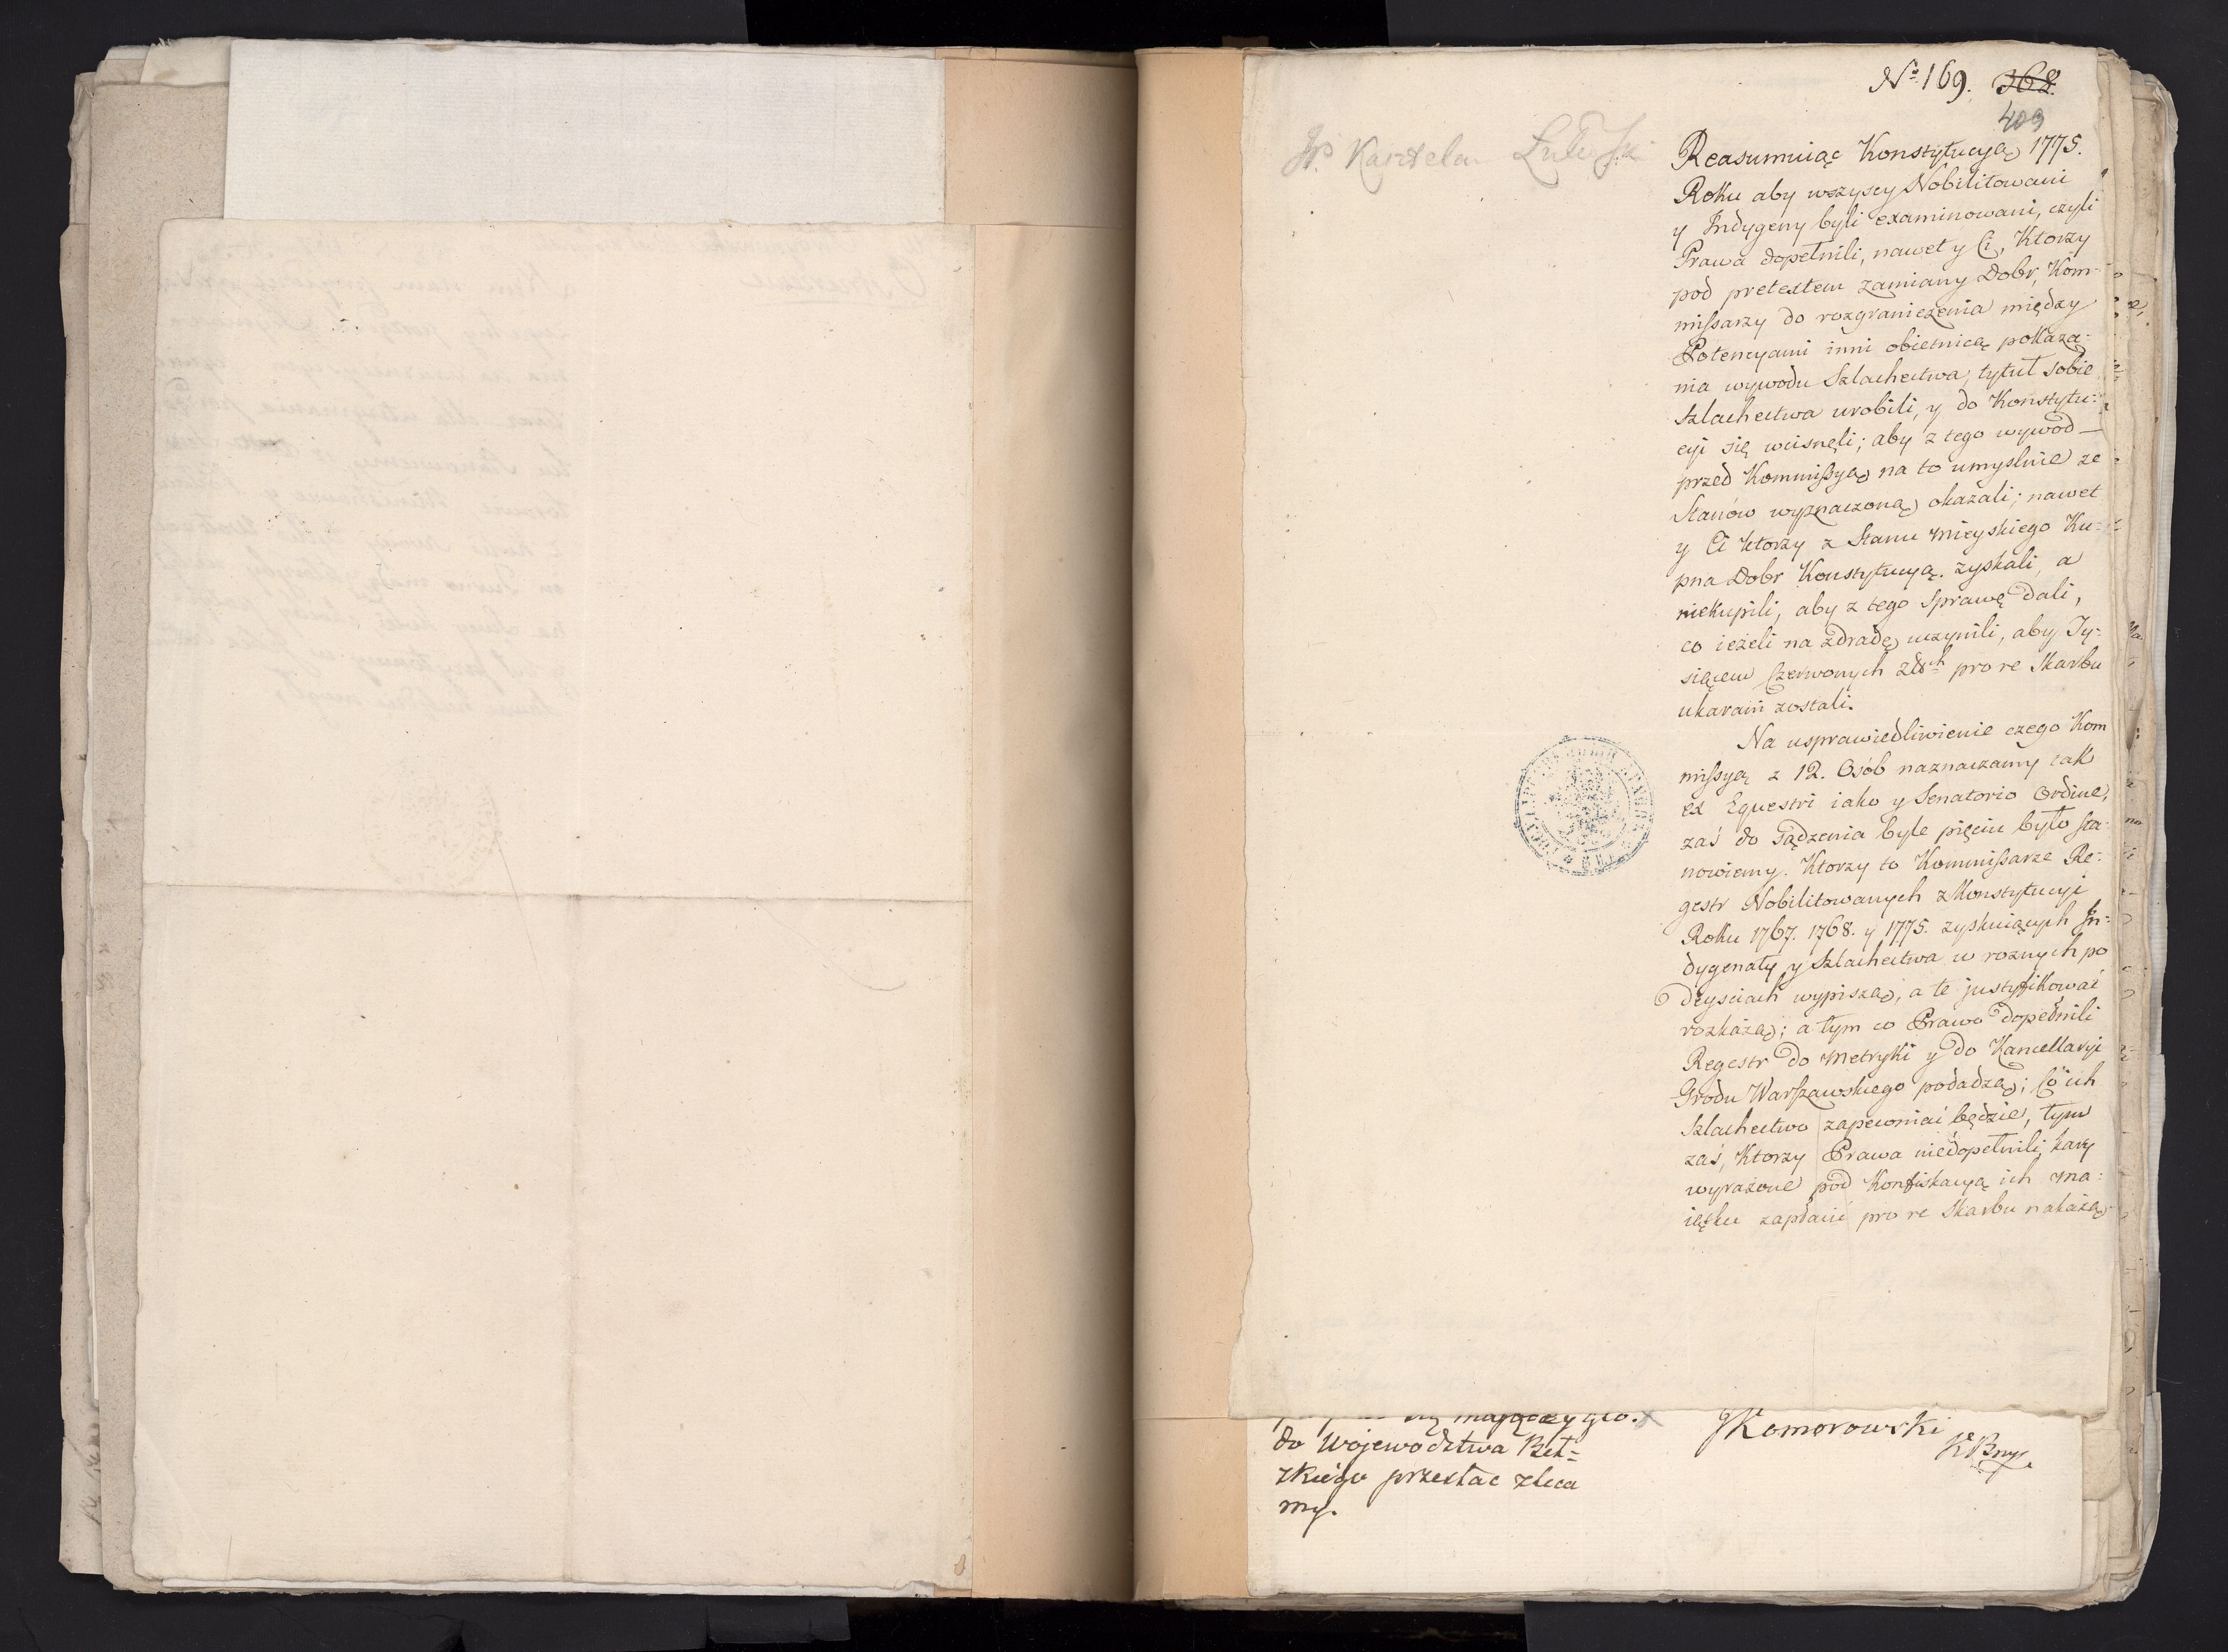 No 169. 368.
409
JP. Kasztelan
Reasumuiąc Konstytucyą 1775.
Roku aby wszyscy Nobilitowani
y Indygeny byli examinowani, czyli
Prawa dopełnili, nawet y Ci, Ktorzy
pod pretextem zamiany Dobr, Kom-
missarzy do rozgraniczenia między
Potencyami inni obietnicą pokaza-
nia wywodu Szlachectwa, tytuł sobie
Szlachectwa urobili, y do Konstytu-
cyi się wcisnęli; aby z tego wywod
przed Kommissyą na to umyslnie ze
Stanow wyznaczoną okazali; nawet
y Ci ktorzy z Stanu Mieyskiego Ku-
pna Dobr Konstytucyą zyskali, a
niekupili, aby z tego Sprawę dali,
co ieżeli na zdradę uczynili, aby Ty-
siącem Czerwonych Złłch pro re Skarbu
ukarani zostali.
Na usprawiedliwienie czego Kom
missyą z 12. Osób naznaczamy tak
ex Equestri iako y Senatorio Ordine,
zaś do sądzenia byle pięciu było sta-
nowiemy. Ktorzy to Kommissarze Re-
gestr Nobilitowanych z Konstytucyi
Roku 1767. 1768. y 1775. zyskuiących In-
dygenaty y Szlachectwa w roznych po
deysciach wypiszą, a te justyfikować
rozkażą; a tym co Prawo dopełnili
Regestr do Metryki y do Kancellaryi
Grodu Warszawskiego podadzą; Co ich
Szlachectwo zapewniać będzie, tym
zaś, Ktorzy Prawa niedopełnili, kary
wyrażone pod Konfiskacyą ich ma-
iątku zapłacić pro re Skarbu nakażą
do Wojewodztwa Beł-
zkiego przesłac zleca
my.
JKomorowski